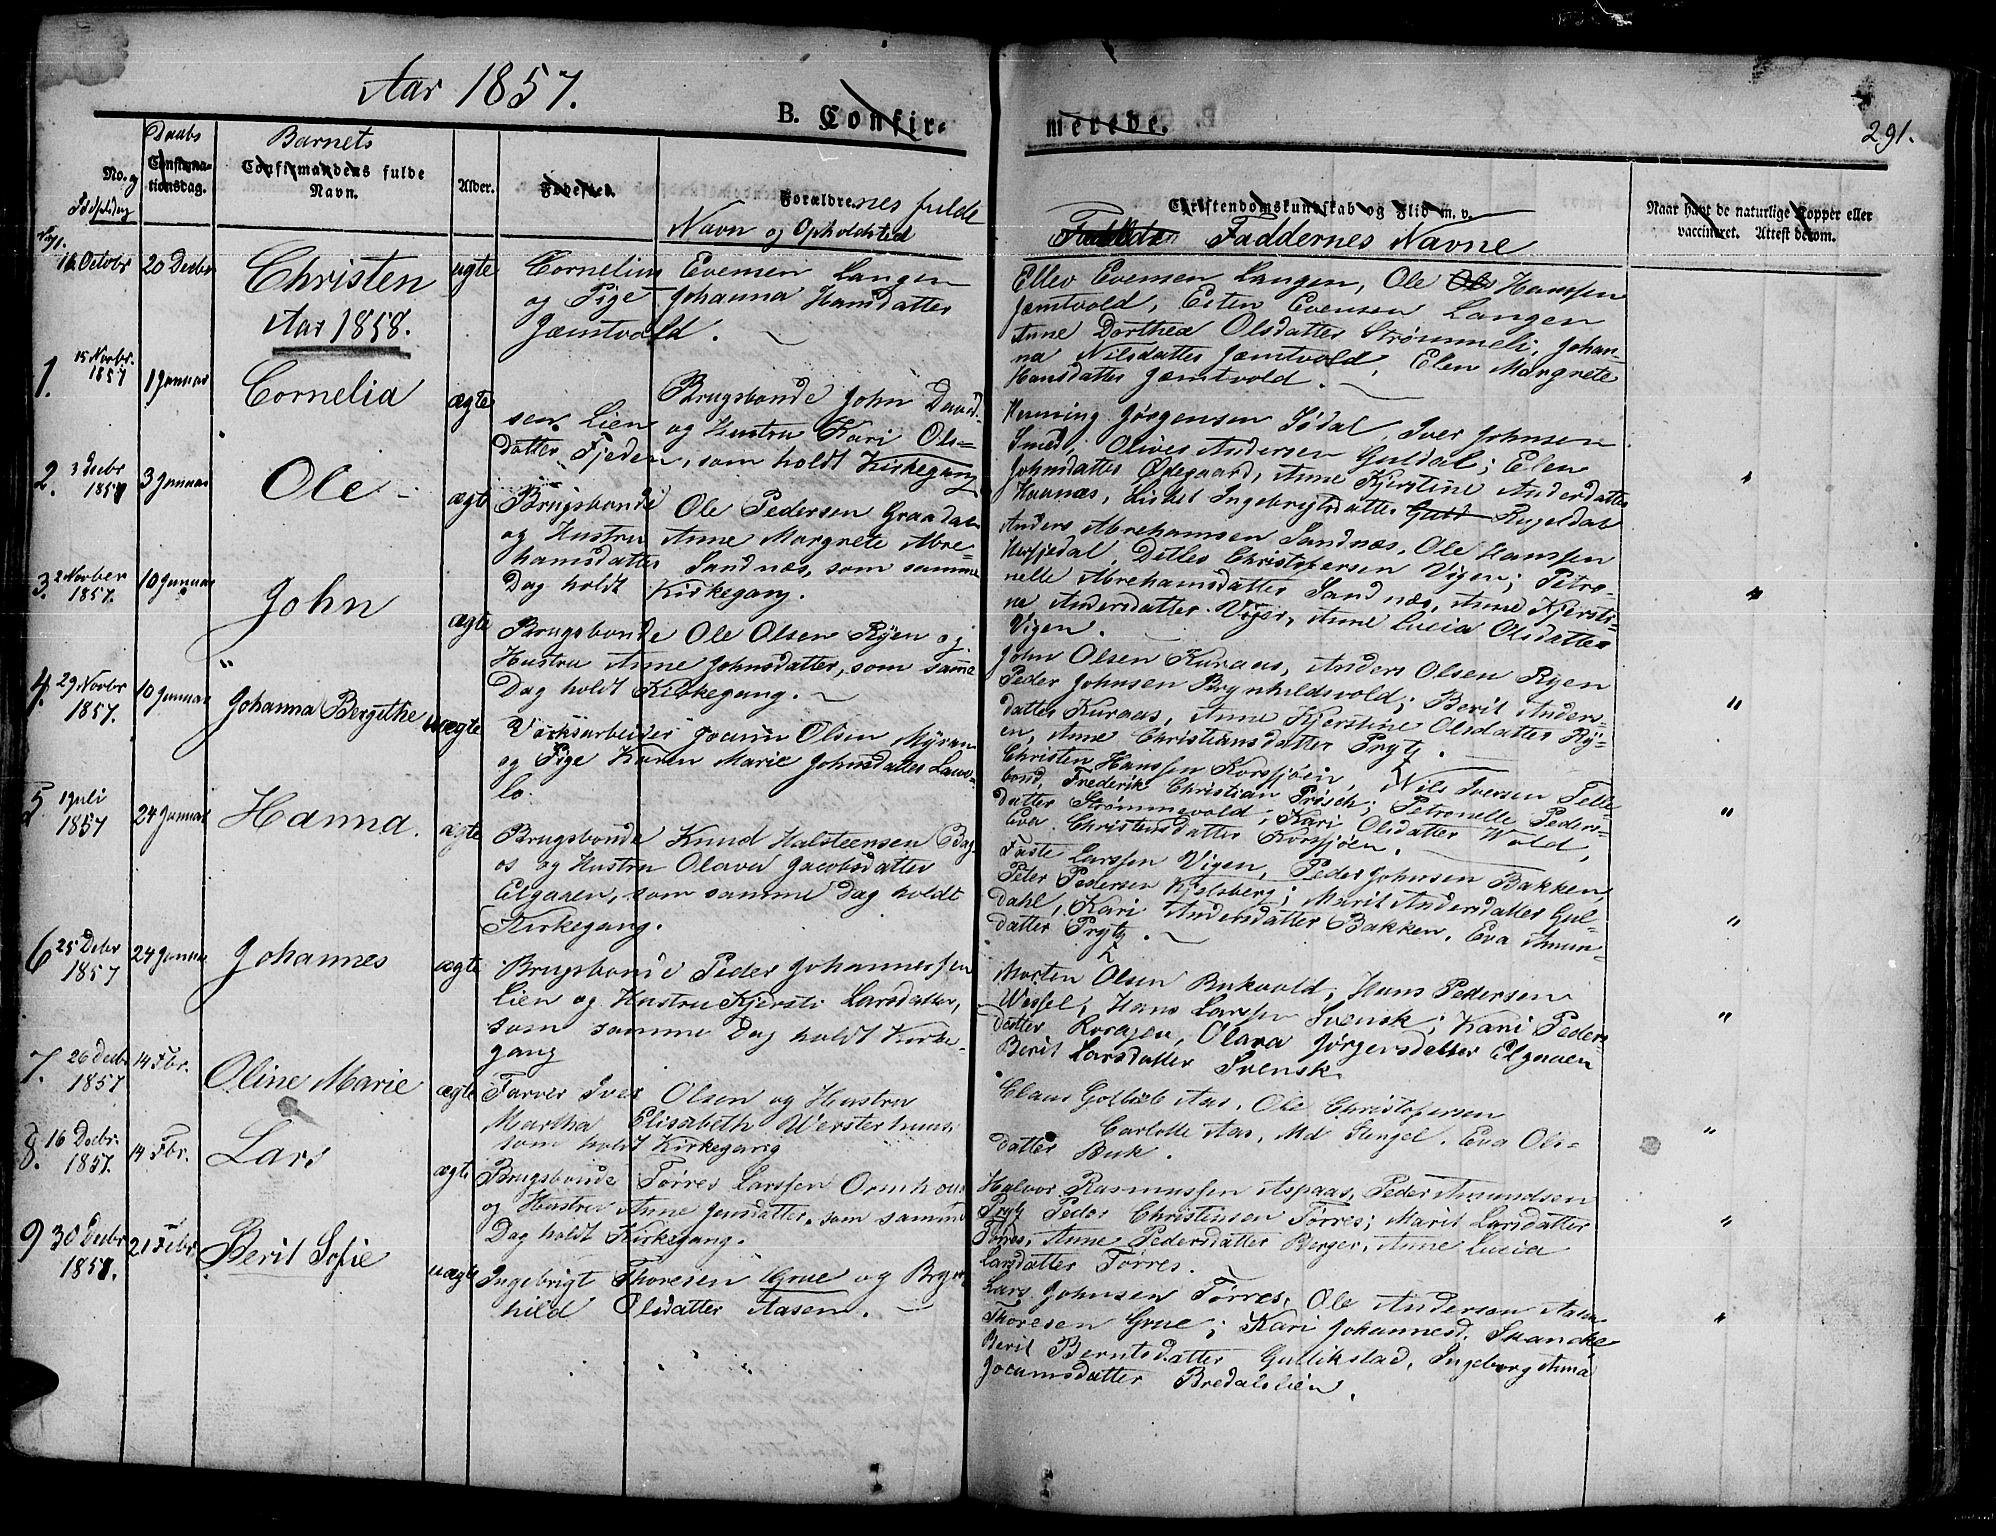 Aar 1857.
B. Confir-
merede.
291.
No. og
Fødselsdag
Daabs
Confirma-
tionsdag.
Barnets
Confirmandens fulde
Navn.
Alder.
Fødested.
Forældrenes fulde
Navn og Opholdsted
Christendomskundskab og Flid m. v.
Faddernes Navne
Naar havt de naturlige Kopper eller
vaccineret. Attest derom.
16 Octobr
20 Decbr
Christen
uægte
Cornelius Evensen Langen
og Pige Johanna Hansdatter
Jæmtvold.
Ellev Evensen Langen, Ole Ols Hanssen
Jæmtvold, Esten Evensen Langen
Anne Dorthea Olsdatter Strømmeli, Johan-
na Nilsdatter Jæmtvold, Elen Margrete
Hansdatter Jæmtvold.
Aar 1858.
1.
15 Novbr.
1857
1 Januar
Cornelia
ægte
Brugsbonde John David-
sen Lien og Hustru Kari Ols-
datter Fjeden, som holdt Kirkegang
Henning Jørgensen Sødal, Iver Johnsen
Smed, Oliver Andersen Guldal; Elen
Johnsdatter Ødegaard, Anne Kjerstine Andersdatter
Havnæs, Lisbet Ingebrigtsdatter Guld Rugeldal
2.
3 Decbr
1857
3 Januar
Ole
ægte
Brugsbonde Ole Pedersen Graadal
og Hustru Anne Margrete Abre-
hamsdatter Sandnæs, som samme
Dag holdt Kirkegang.
Anders Abrehamsen Sandnæs, Ole Hanssen
Hersjedal, Ditlef Christofersen Vigen; Petro-
nelle Abrehamsdatter Sandnæs, Anne Kjersti-
ne Andersdatter Vigen, Anne Lucia Olsdatter
Vigen.
3.
2 Novber
1857.
10 Januar
John
ægte
Brugsbonde Ole Olsen Ryen og
Hustru Anne Johnsdatter, som samme
Dag holdt Kirkegang.
John Olsen Kuraas, Anders Olsen Ryen
Peder Johnsen Brynhildsvold; Berit Anders-
datter Kuraas, Anne Kjerstine Olsdatter Ry-
en, Anne Christiansdatter Prytz.
4.
29 Novbr
1857.
10 Januar
Johanna Bergithe
uægte
Værksarbeider Jocum Olsen Myran
og Pige Karen Marie Johnsdatter Lans-
lo.
Christen Hanssen Korssjøen, Nils Iversen Telle-
bond, Frederik Christian Prøsch; Petronelle Peders-
datter Strømmevold, Kari Olsdatter Wold,
Eva Christensdatter Korssjøen.
5
1 Juli
1857
24 Januar
Hanna.
ægte
Brugsbonde Knud Halsteensen Bag-
os og Hustru Olava Jacobsdatter
Elgaaen, som samme Dag holdt
Kirkegang.
Faste Larssen Vigen, Peder Johnsen Bakken,
Peter Pedersen Kjelsberg; Marit Andersdatter Gul-
dahl, Kari Andersdatter Bakken, Eva Amun-
datter Prytz.
6
25 Decbr
1857
24 Januar
Johannes
ægte
Brugsbonde Peder Johannessen
Lien og Hustru Kjersti Larsdatter,
som samme Dag holdt Kirke-
gang
Morten Olsen Bukvold, Hans Pedersen
Wessel, Hans Larssen Svensk; Kari Peders-
datter Rorgjen, Olava Jørgensdatter Elgaaen
Berit Larsdatter Svensk.
7.
26 Decbr
1857
14 Fbr.
Oline Marie
ægte
Farver Iver Olsen og Hustru
Martha Elisabeth Wersterhuus
som holdt Kirkegang
Claus Gotlieb Aas, Ole Christofersen
Carlotte Aas, Md Stengel, Eva Ols-
datter Buk.
8.
16 Decbr.
1857.
14 Fbr.
Lars
ægte
Brugsbonde Tørres Larssen Ormhoug
og Hustru Anne Jensdatter, som samme
Dag holdt Kirkegang.
Halvor Rasmussen Aspaas, Peder Amundsen
Prytz Peder Christensen Tørres; Marit Larsdatter
Tørres, Anne Pedersdatter Berger, Anne Lucia
Larsdatter Tørres.
9
30 Decbr
1857.
21 Febr.
Berit Sofie
uægte
Ingebrigt Thoresen Grue og Bryn-
hild Olsdatter Aasen.
Lars Johnsen Tørres, Ole Andersen Aasen
Thoresen Grue; Kari Johannesd. Skancke
Berit Berntsdatter Gullikstad, Ingeborg Anna
Jocumsdatter Bredalslien.